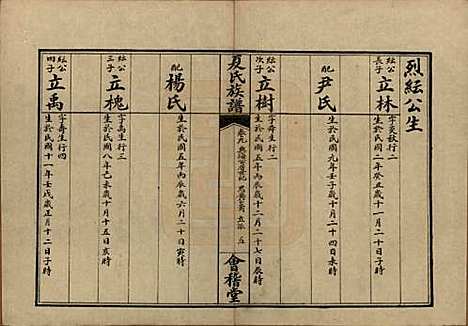 烈紜公生
紜公長子
立林
字茭秋行二
生於民國二年癸丑歲十一月二十日子時
配
尹氏
生於民國元年壬子歲十月二十四日未時
紜公次子
立樹
字舜生行二
生於民國五年丙辰歲十二月二十七日辰時
夏氏族譜
卷九
會稽堂
配
楊氏
生於民國五年丙辰歲六月二十日寅時
紜公三子
立槐
字禹生行三
生於民國八年己未歲十月十五日亥時
紜公四子
立禹
字壽生行四
生於民國十一年壬戌歲正月十二日子時